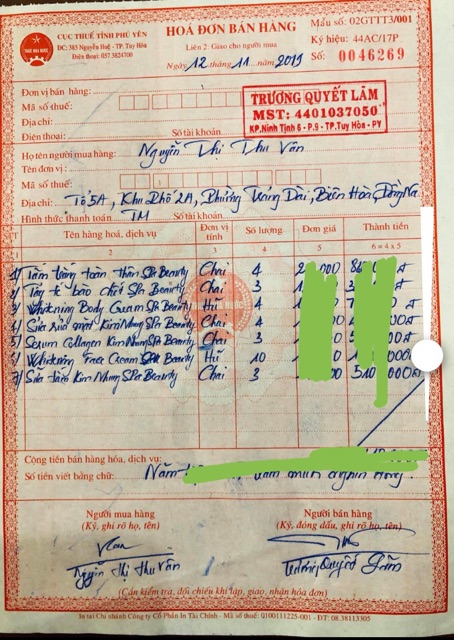 CỤC THUẾ TỈNH PHÚ YÊN
ĐC: 385 Nguyễn Huệ - TP. Tuy Hòa
Điện thoại: 057 3824700
HOÁ ĐƠN BÁN HÀNG
Liên 2: Giao cho người mua
Ngày 12 tháng 11 năm 2019
Mẫu số: 02GTTT3/001
Ký hiệu: 44AC/17P
Số: 0046269
Đơn vị bán hàng:
Mã số thuế:
Địa chỉ:
Điện thoại: Số tài khoản
TRƯƠNG QUYẾT LÂM
MST: 4401037050
KP.Ninh Tịnh 6 - P.9 - TP.Tuy Hòa - PY
Họ tên người mua hàng: Nguyễn Thị Thu Vân
Tên đơn vị:
Mã số thuế:
Địa chỉ: Tổ 5A, Khu Phố 2A, Phường Trảng Dài, Biên Hoà, Đồng Na
Hình thức thanh toán TM Số tài khoản
TT Tên hàng hoá, dịch vụ Đơn vị tính Số lượng Đơn giá Thành tiền
2 3 4 5 6 = 4 x 5
1/ Tắm trắng toàn thân Spa Beauty Chai 4
2/ Tẩy tế bào chết Spa Beauty Chai 3
3/ Whitening Body Cream Spa Beauty Hũ 4
4/ Sữa rửa mặt Kim Nhung Spa Beauty Chai 4
5/ Serum Collagen Kim Nhung Spa Beauty Chai 3
6/ Whitening Face Cream Spa Beauty Hũ 10
7/ Sữa tắm Kim Nhung Spa Beauty Chai 3
Cộng tiền bán hàng hóa, dịch vụ:
Số tiền viết bằng chữ: Năm
Người mua hàng Người bán hàng
(Ký, ghi rõ họ, tên) (Ký, đóng dấu, ghi rõ họ, tên)
Nguyễn Thị Thu Vân Trương Quyết Lâm
(Cần kiểm tra, đối chiếu khi lập, giao, nhận hóa đơn)
In tại Chi nhánh Công ty Cổ Phần In Tài Chính - Mã số thuế: 0100111225-001 - ĐT: 08.38113305